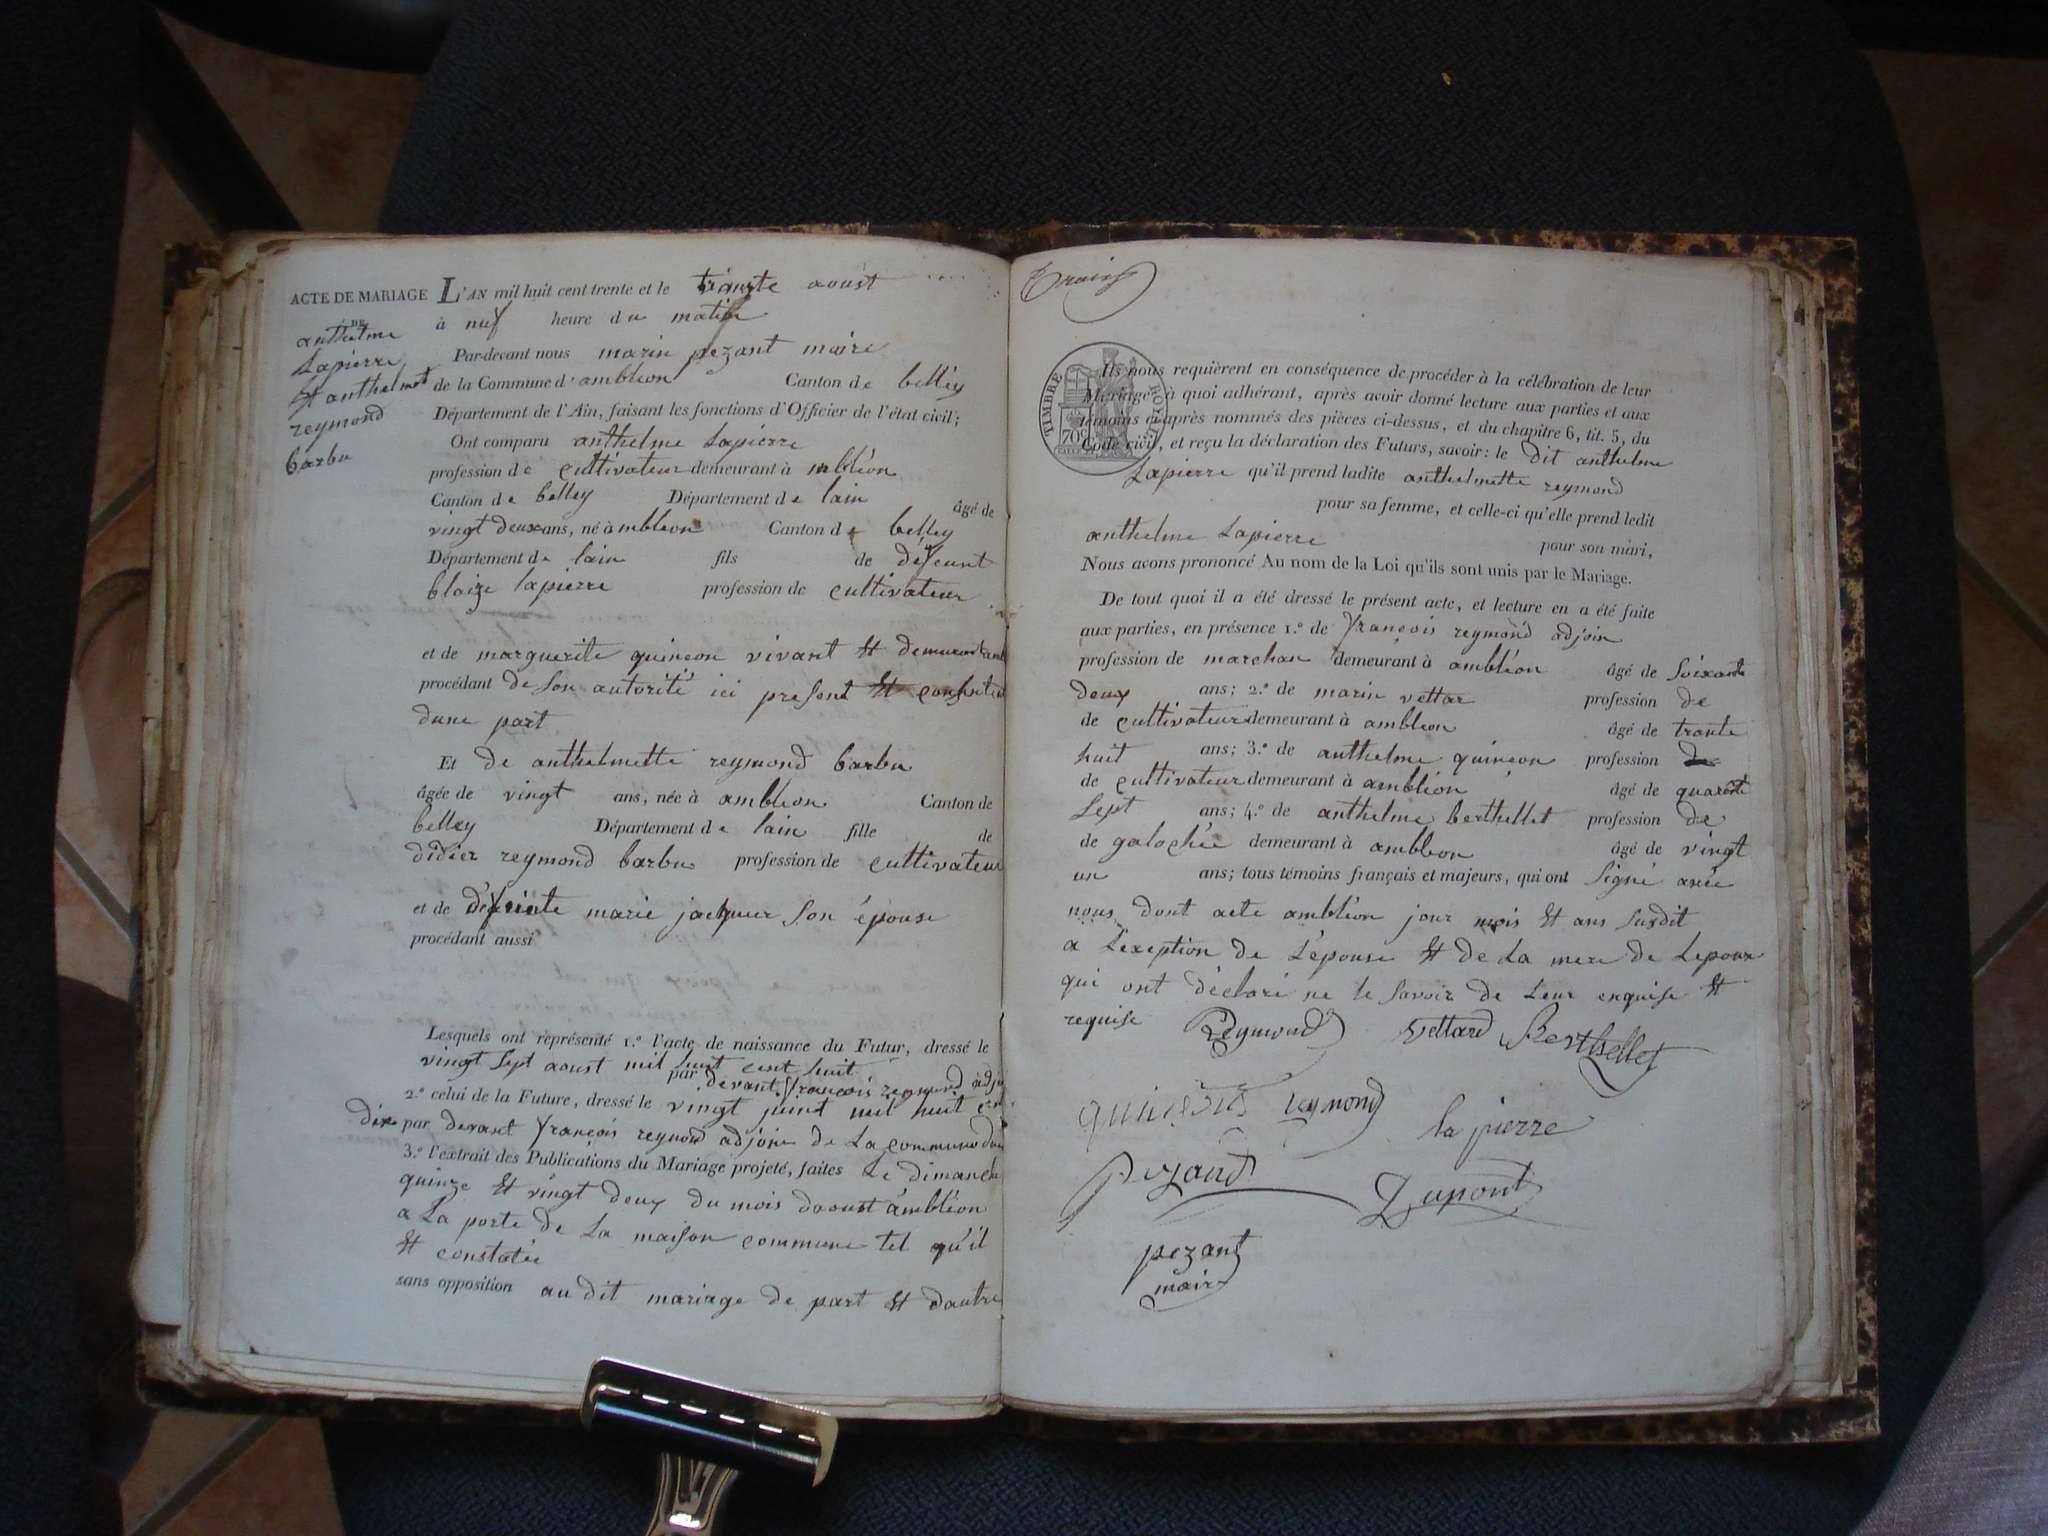 ACTE DE MARIAGE
DE
anthelme
Lapierre
Et anthelmet
reymond
barbu
L'AN mil huit cent trente et le trante aoust
à nuf heure du matin
Par-devant nous marin pezant maire
de la Commune d'ambléon Canton de belley
Département de l'Ain, faisant les fonctions d'Officier de l'état civil;
Ont comparu anthelme Lapierre
profession de cultivateur demeurant à mbléon
Canton de belley Département de lain âgé de
vingt deux ans, né à mbleon Canton de belley
Département de lain fils de défeunt
blaize lapierre profession de cultivateur
et de marguerite quinson vivant Et demeurant
procédant de Son autorité ici present Et
dune part
Et de anthelmette reymond barbu
âgée de vingt ans, née à ambléon Canton de
belley Département de lain fille de
didier reymond barbu profession de cultivateur
et de défeinte marie jacquier Son épouse
procédant aussi
Lesquels ont représenté 1.º l'acte de naissance du Futur, dressé le
vingt Sept aoust mil huit cent huit
par devant françois reymond adj
2.º celui de la Future, dressé le vingt juint mil huit cent
dix par devant françois reymond adjoin de La commune
3.º l'extrait des Publications du Mariage projeté, faites Le dimanche
quinze Et vingt deux du mois daoust ambléon
a La porte de La maison commune tel qu'il
Et constatée
sans opposition au dit mariage de part Et dautre
TIMBRE ROYAL
70c
Ils nous requièrent en conséquence de procéder à la célébration de leur
Mariage; à quoi adhérant, après avoir donné lecture aux parties et aux
témoins ci-après nommés des pièces ci-dessus, et du chapitre 6, tit. 5, du
Code civil, et reçu la déclaration des Futurs, savoir: le dit anthelme
Lapierre qu'il prend ladite anthelmette reymond
pour sa femme, et celle-ci qu'elle prend ledit
anthelme Lapierre pour son mari,
Nous avons prononcé Au nom de la Loi qu'ils sont unis par le Mariage.
De tout quoi il a été dressé le présent acte, et lecture en a été faite
aux parties, en présence 1.º de françois reymond adjoin
profession de marchan demeurant à ambléon âgé de Soixante
deux ans; 2.º de marin vettar profession de
de cultivateur demeurant à ambleon âgé de trante
huit ans; 3.º de anthelme quinson profession de
de cultivateur demeurant à ambléon âgé de quarente
Sept ans; 4.º de anthelme berthellet profession de
de galochié demeurant à ambléon âgé de vingt
un ans; tous témoins français et majeurs, qui ont Signé avec
nous dont acte ambléon jour mois Et ans Susdit
a L'exeption de L'épouse Et de La mere de Lepoux
qui ont déclaré ne le Savoir de Leur enquise Et
requise Reymond Vettard Berthellet
quinson reymond la pierre
pezand Dupont
pezant
maire